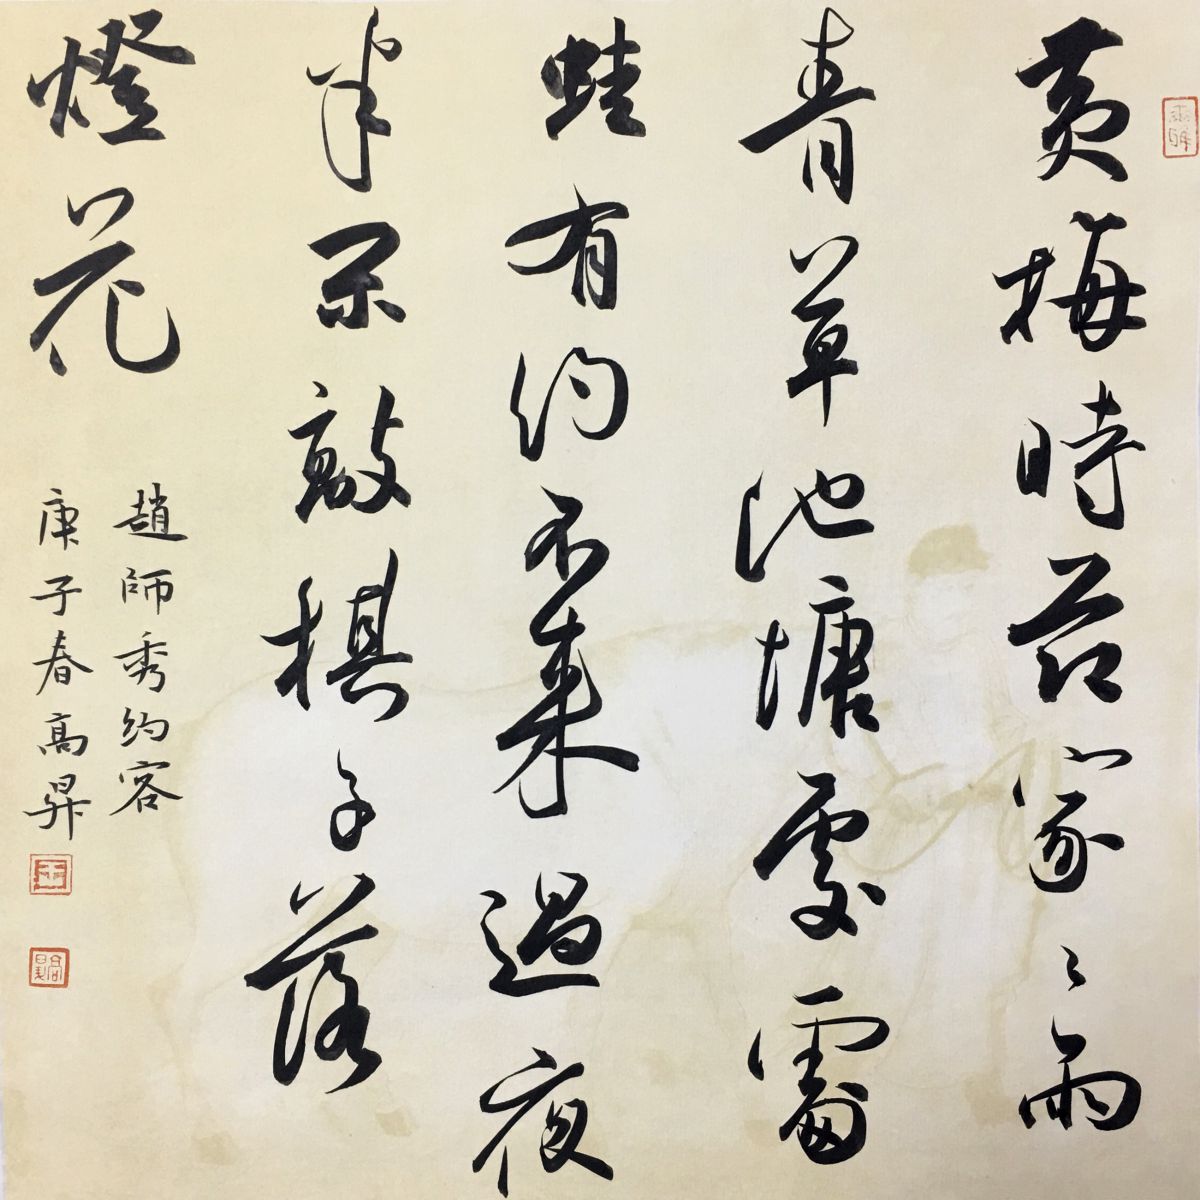 黄梅時節家々雨
青草池塘處處
蛙有約不來過夜
半閑敲棋子落
燈花
趙師秀約客
庚子春高昇